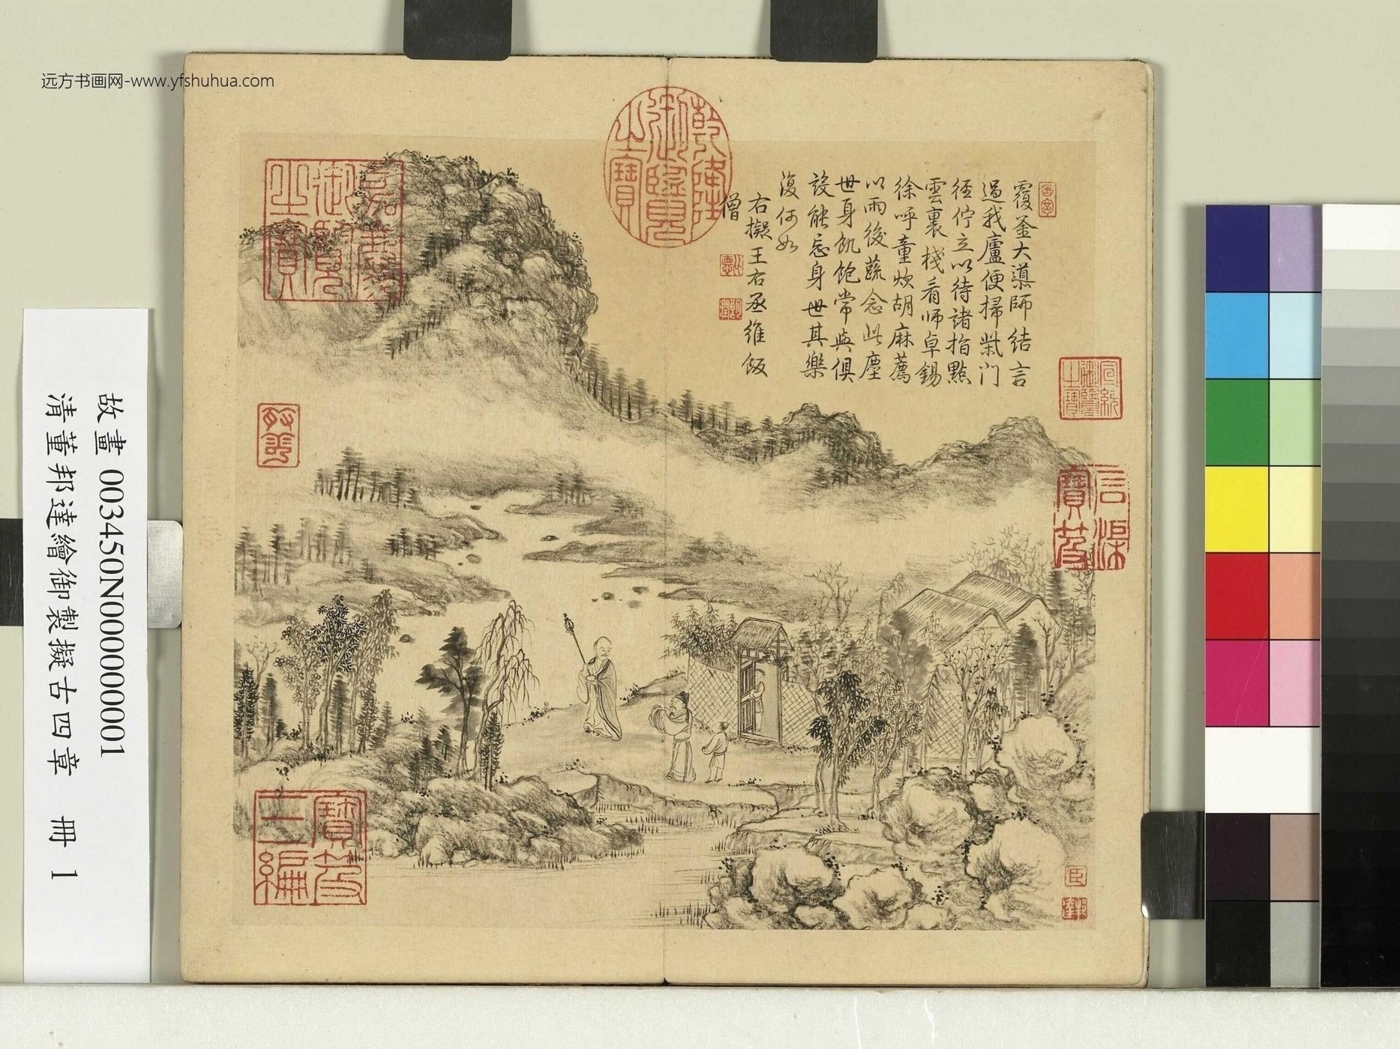 远方书画网-www.yfshuhua.com
故畫 003450N000000001
清董邦達繪御製擬古四章 冊 1
覆釜大導師結言
過我廬便掃柴门
徑佇立以待諸指點
雲裏棧看師卓錫
徐呼童炊胡麻薦
以雨後蔬念此塵
世身飢飽常與俱
設能忘身世其樂
復何如
右擬王右丞維飯
僧
乾隆御覽之寶
嘉慶御覽之寶
宣統御覽之寶
石渠寶笈
寶笈三編
臣